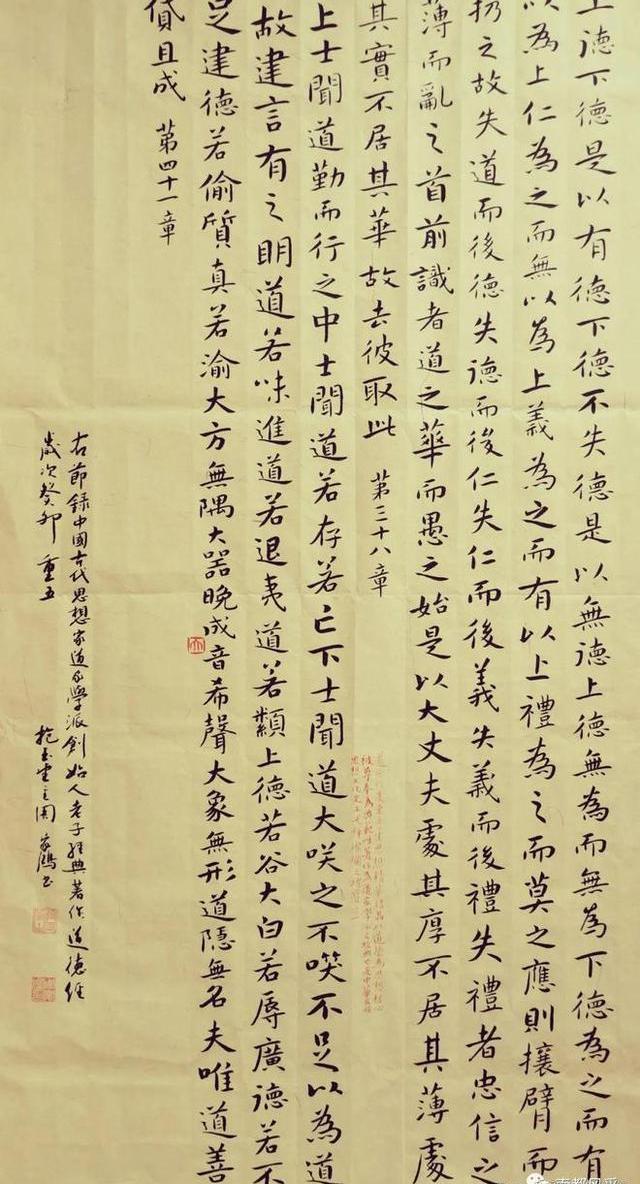 上德下德是以有德下德不失德是以無德上德無為而無為下德為之而有
以為上仁為之而無以為上義為之而有以上禮為之而莫之應則攘臂而
扔之故失道而後德失德而後仁失仁而後義失義而後禮失禮者忠信之
薄而亂之首前識者道之華而愚之始是以大丈夫處其厚不居其薄處
其實不居其華故去彼取此 第三十八章
上士聞道勤而行之中士聞道若存若亡下士聞道大咲之不咲不足以為道
故建言有之明道若昧進道若退夷道若纇上德若谷大白若辱廣德若不
足建德若偷質真若渝大方無隅大器晚成音希聲大象無形道隱無名夫唯道善
貸且成 第四十一章
右節錄中國古代思想家道家學派創始人老子經典著作道德經
歲次癸卯 重五